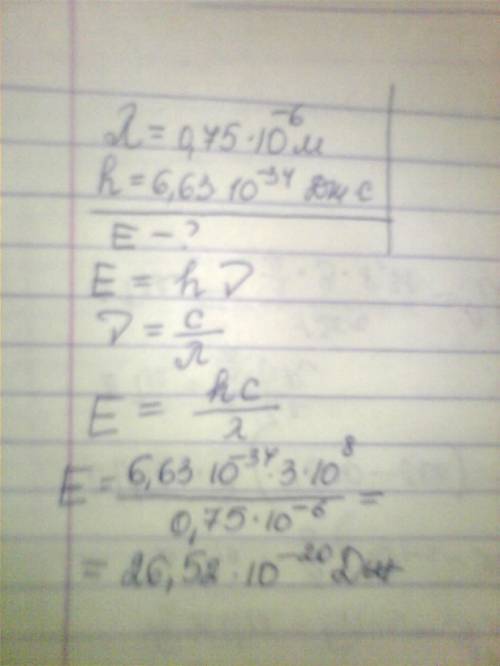 λ = 0,75 · 10⁻⁶ м
h = 6,63 · 10⁻³⁴ Дж с
E – ?
E = h ν
ν = c/λ
E = hc/λ
E = 6,63 · 10⁻³⁴ · 3 · 10⁸ / 0,75 · 10⁻⁶ =
= 26,52 · 10⁻²⁰ Дж